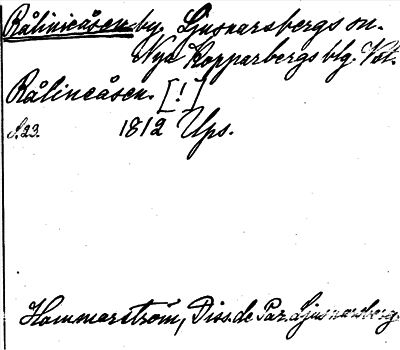 Rålinieåsen by, Ljusnarsbergs sn.
Nya Kopparbergs blg. Vstm.
Rålineåsen. [!]
S. 23. 1812 Ups.
Hammarström, Diss. de Par. Ljusnarsberg.